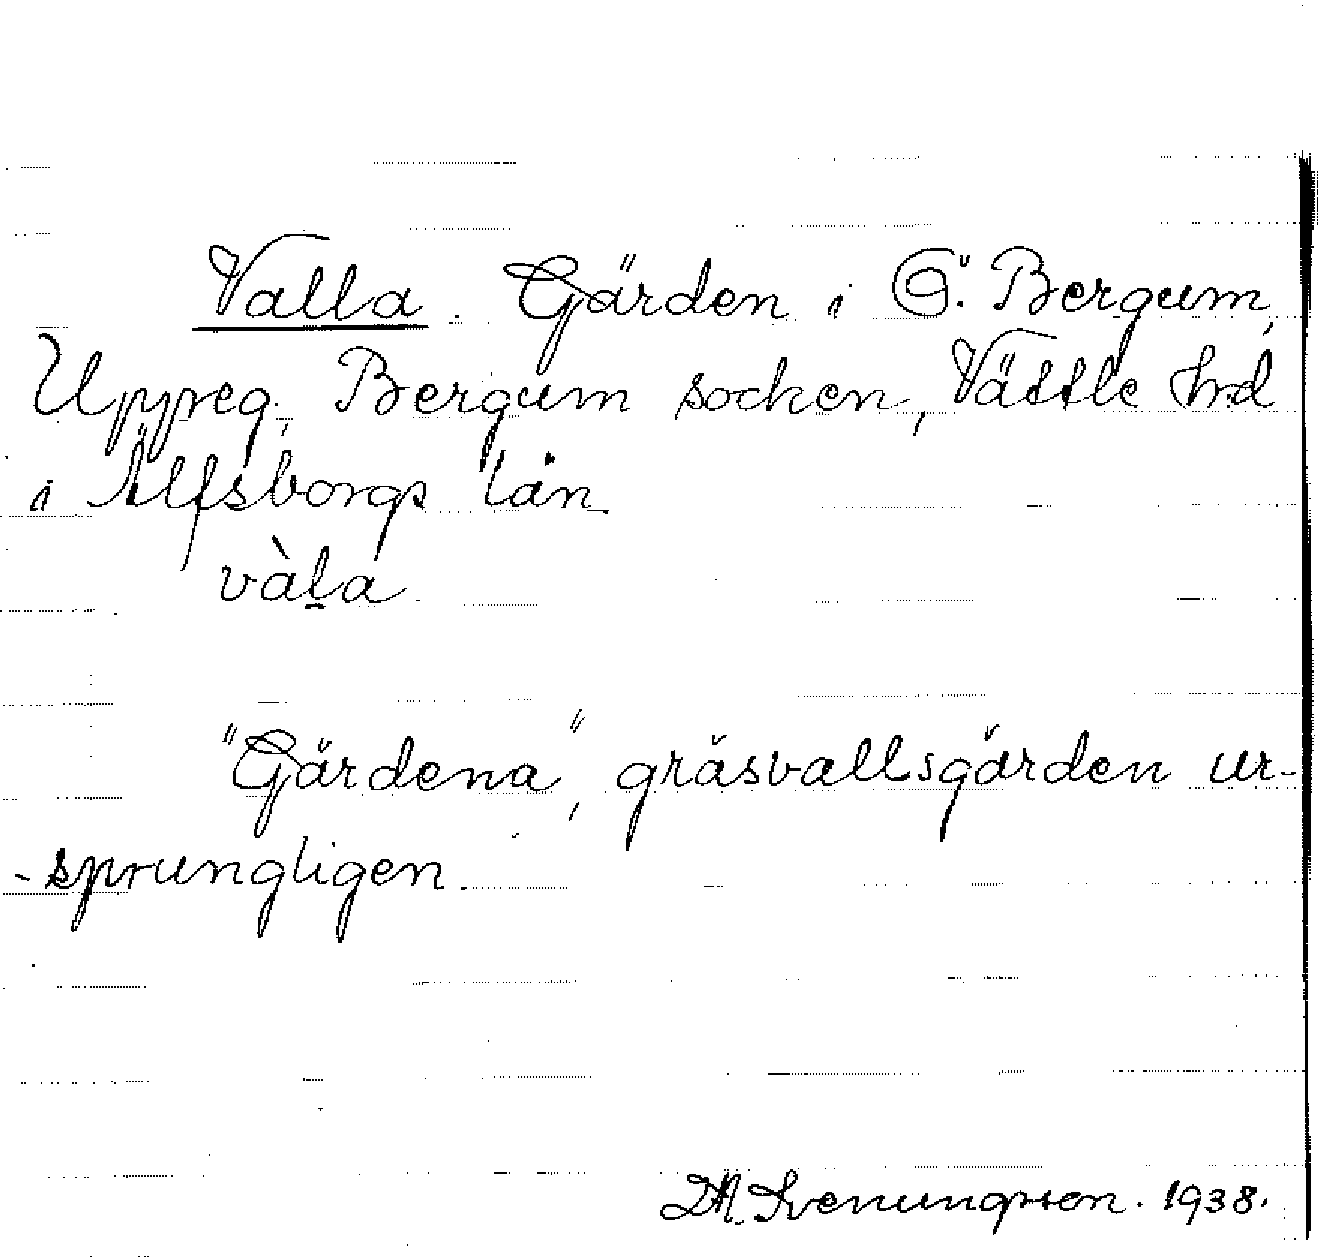 Valla. Gärden i Ö. Bergum,
Uppreg., Bergum socken, Vättle hrd
i Älfsborgs län
vàḻa
"Gärdena", gräsvallsgärden ur-
-sprungligen.
Svenungsson. 1938.